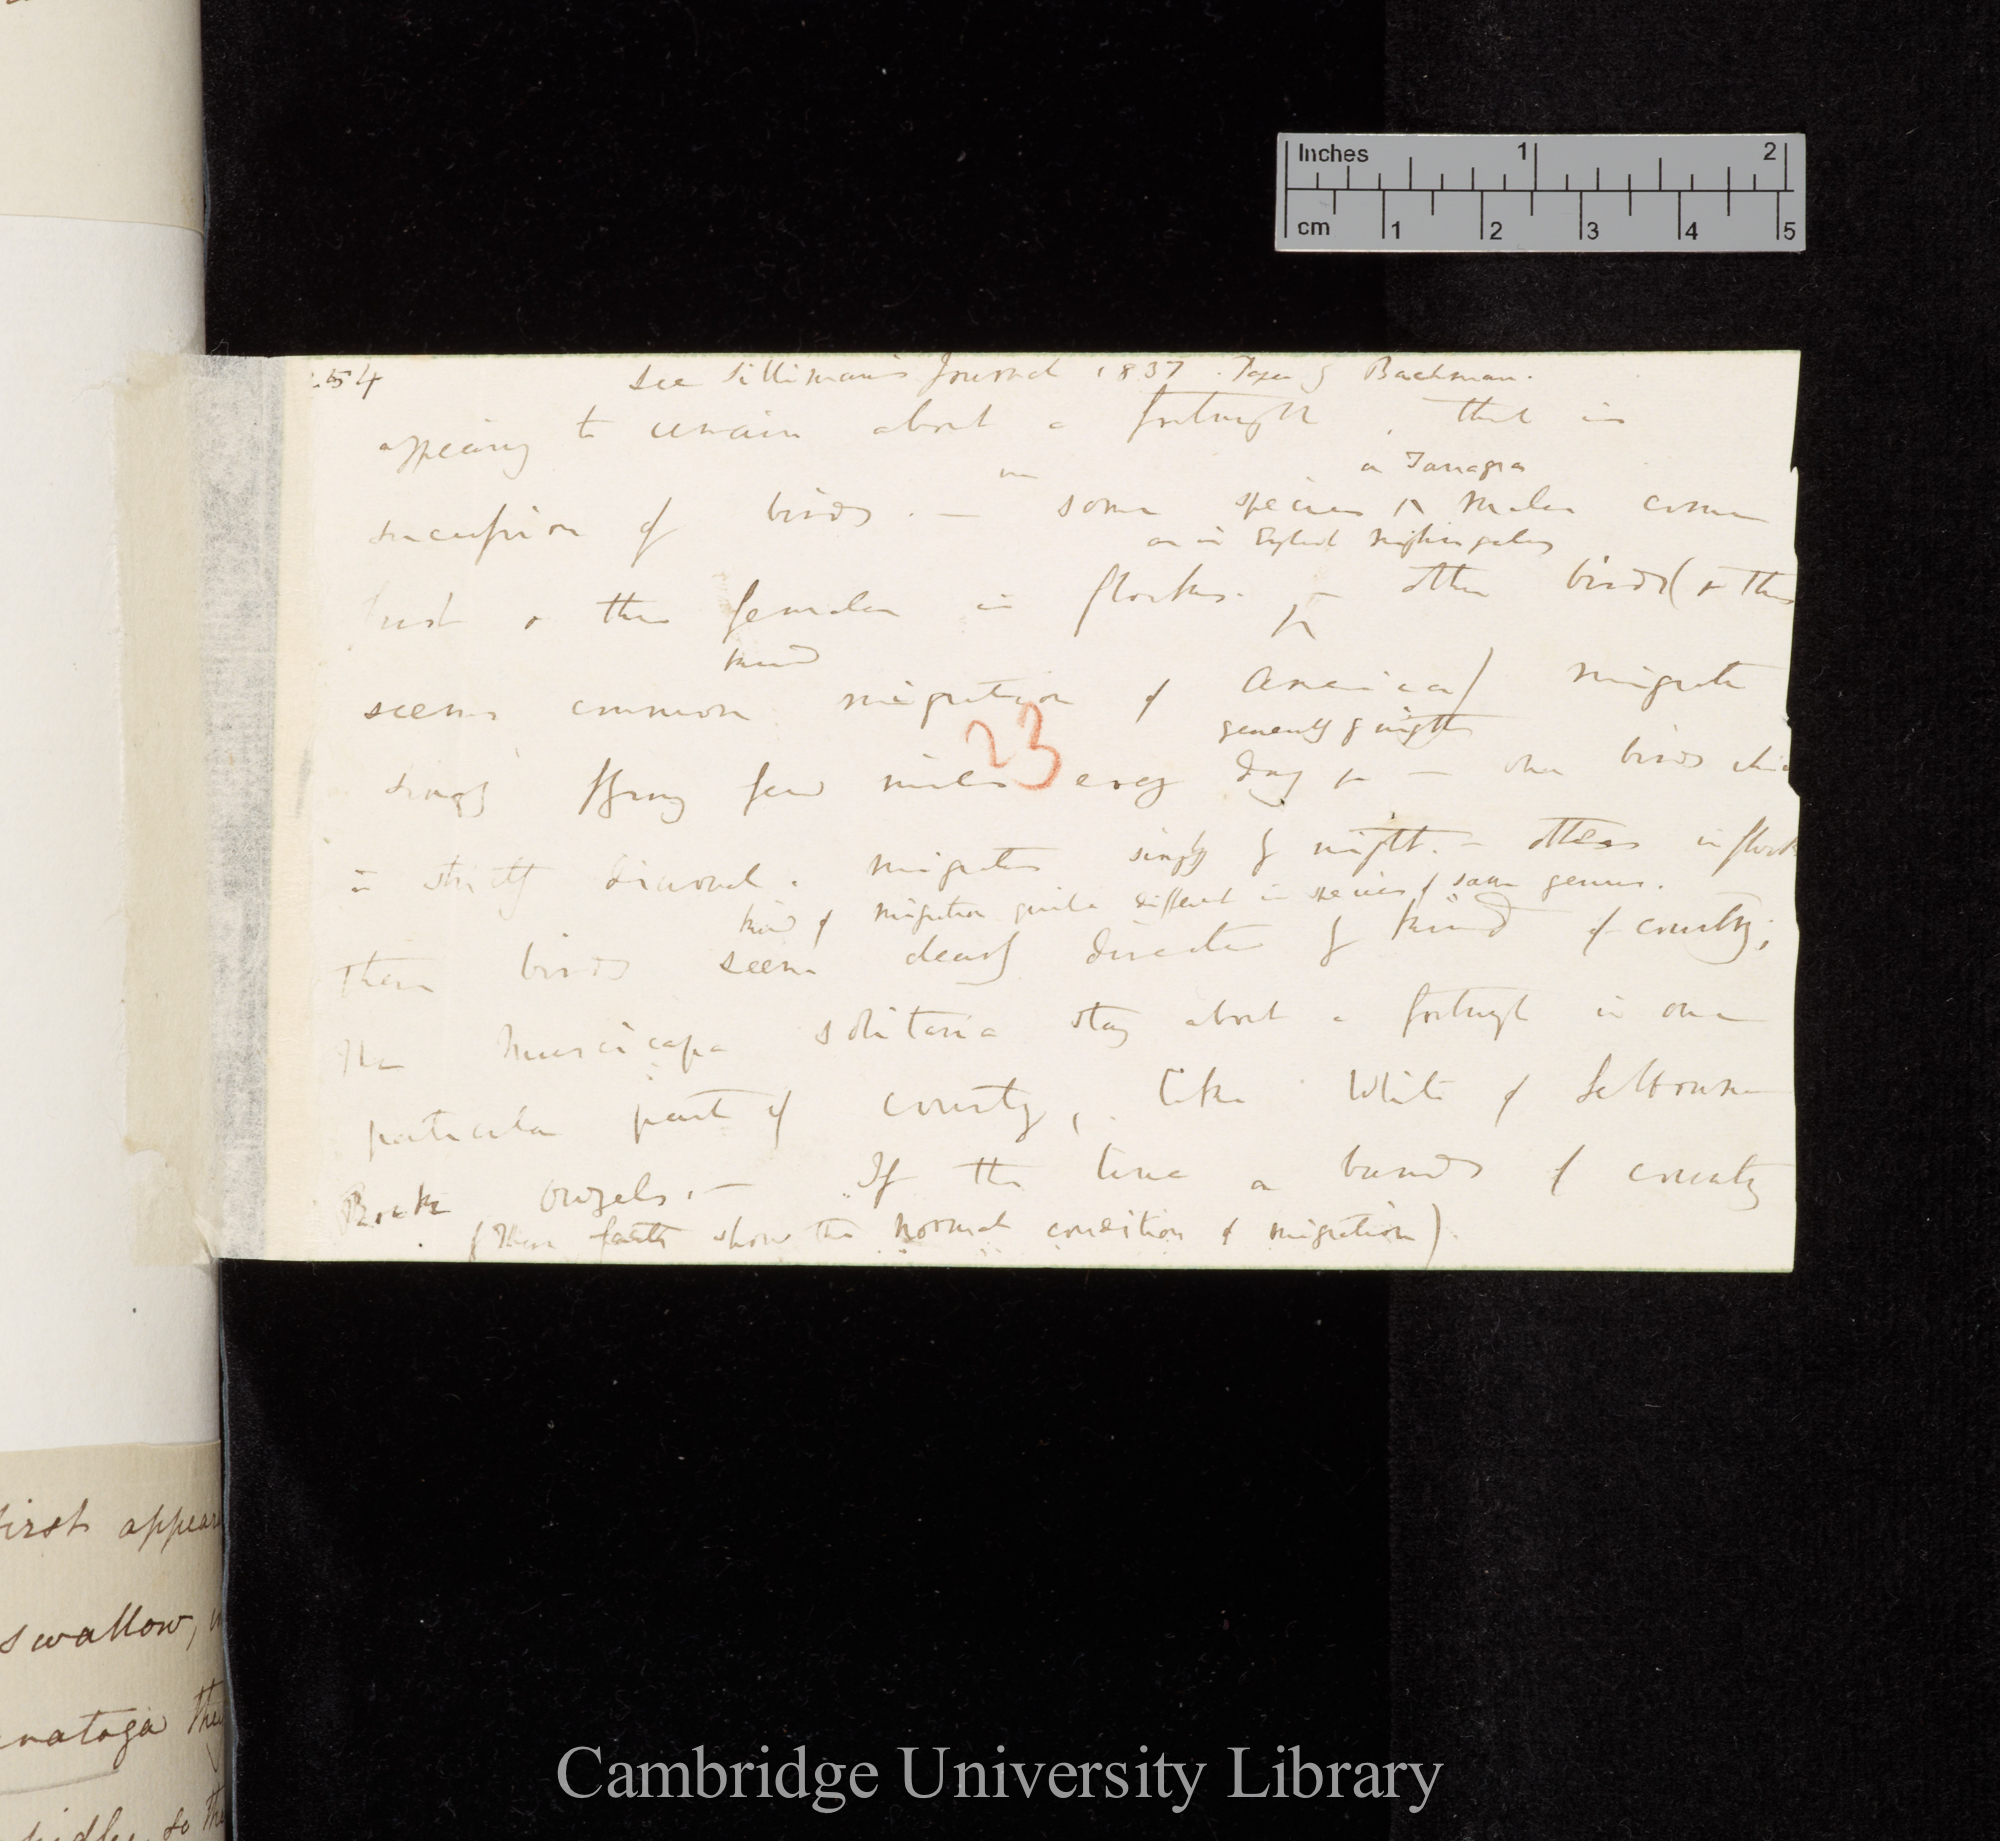 Inches 1 2
cm 1 2 3 4 5
254 see Silliman's Journal 1837. Paper by Bachman.
appearing to remain about a fortnight, that is
succession of birds. — in some species ^ males come
a Tanagra
first & then females in flocks. ^ — other birds (& this
as in England nightingales
seems common kind migration of America) migrate
singly flying few miles every day ^ — one birds which
generally by night
23
is strictly diurnal. migrates singly by night. — others in flocks
kind of migration quite different in species of same genus.
these birds seem clearly directed by kind of country;
the Muscicapa solitaria stay about a fortnight in one
particular part of country, like White of Selborne
Rock ouzels. — If the line or bands of country
(These facts show the normal condition of migration)
first appear
swallow,
they
so the
Cambridge University Library